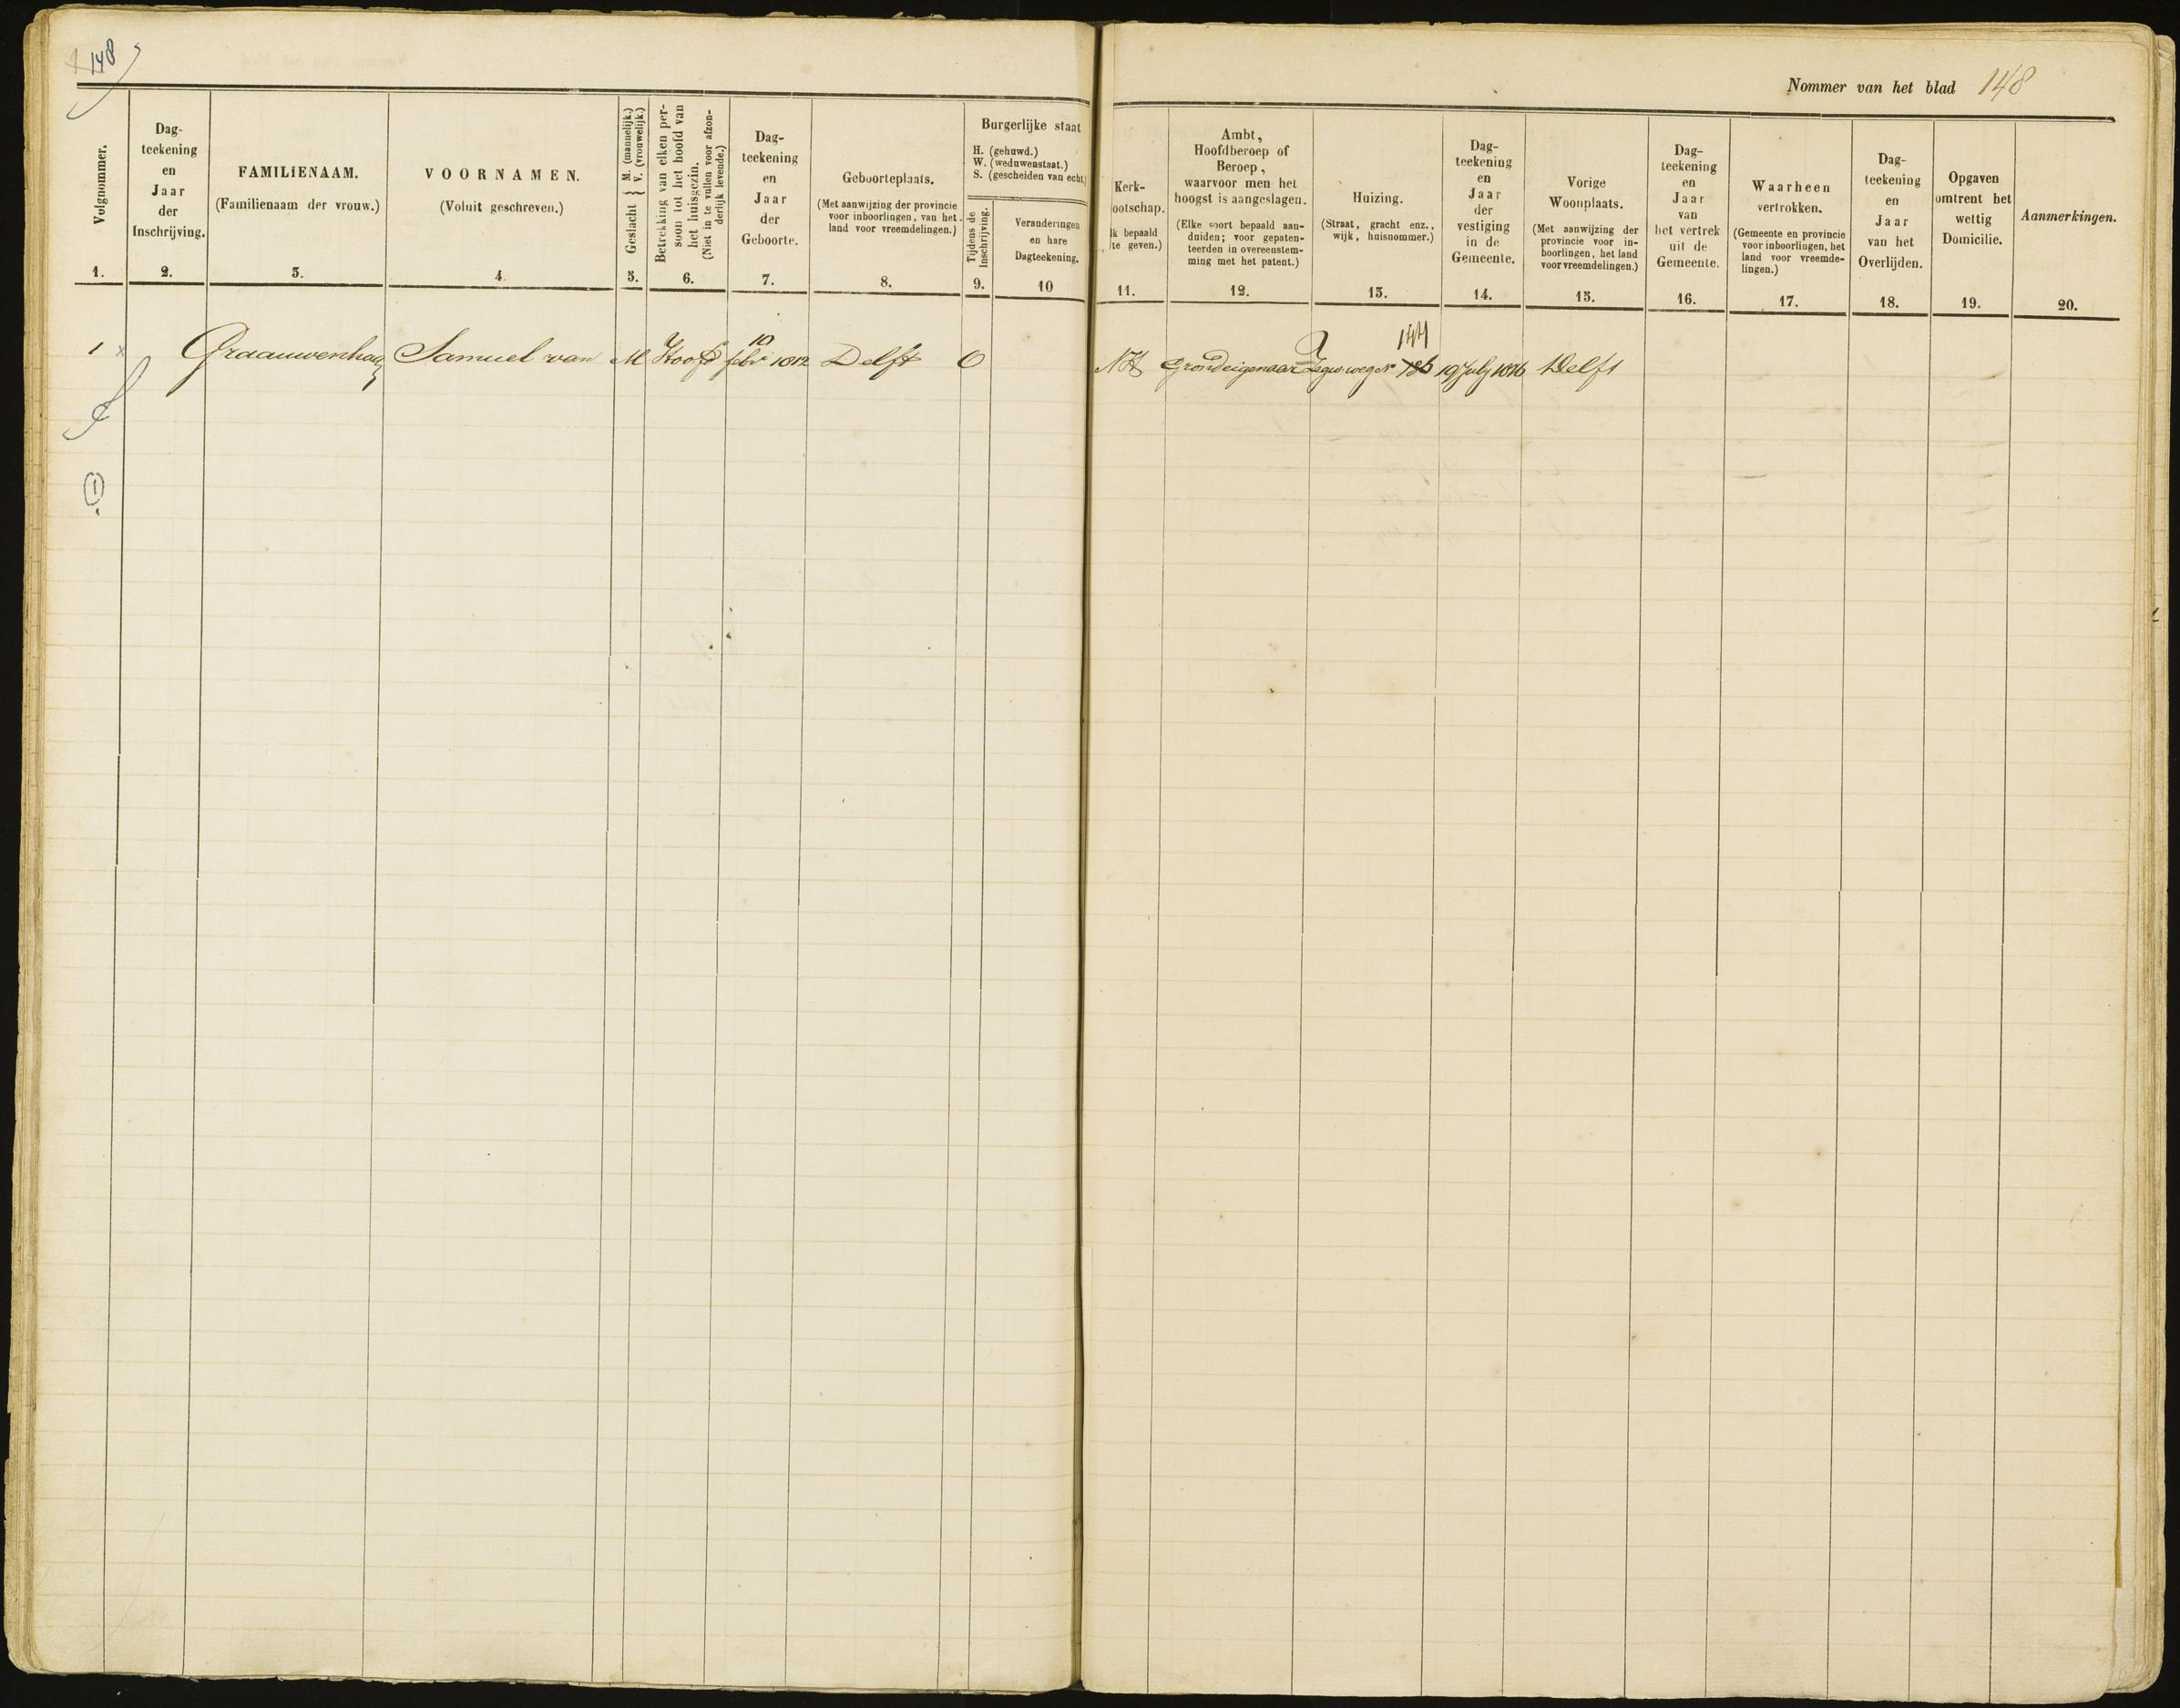 148
Nommer van het blad 148
Volgnommer.
1.
Dag-
teekening
en
Jaar
der
Inschrijving.
2.
FAMILIENAAM.
(Familienaam der vrouw.)
3.
VOORNAMEN.
(Voluit geschreven.)
4.
Geslacht { M. (mannelijk.)
V. (vrouwelijk.)
5.
Betrekking van elken per-
soon tot het hoofd van
het huisgezin.
(Niet in te vullen voor afzon-
derlijk levende.)
6.
Dag-
teekening
en
Jaar
der
Geboorte.
7.
Geboorteplaats.
(Met aanwijzing der provincie
voor inboorlingen, van het
land voor vreemdelingen.)
8.
Burgerlijke staat
H. (gehuwd.)
W. (weduwenstaat.)
S. (gescheiden van echt.)
Tijdens de
Inschrijving.
9.
Veranderingen
en hare
Dagteekening.
10
Kerk-
ootschap.
lk bepaald
te geven.)
11.
Ambt,
Hoofdberoep of
Beroep,
waarvoor men het
hoogst is aangeslagen.
(Elke soort bepaald aan-
duiden; voor gepaten-
teerden in overeenstem-
ming met het patent.)
12.
Huizing.
(Straat, gracht enz.,
wijk, huisnommer.)
13.
Dag-
teekening
en
Jaar
der
vestiging
in de
Gemeente.
14.
Vorige
Woonplaats.
(Met aanwijzing der
provincie voor in-
boorlingen, het land
voor vreemdelingen.)
15.
Dag-
teekening
en
Jaar
van
het vertrek
uit de
Gemeente.
16.
Waarheen
vertrokken.
(Gemeente en provincie
voor inboorlingen, het
land voor vreemde-
lingen.)
17.
Dag-
teekening
en
Jaar
van het
Overlijden.
18.
Opgaven
omtrent het
wettig
Domicilie.
19.
Aanmerkingen.
20.
1 Graauwenhaan Samuel van M Hoofd 10 febr 1812 Delft O
NH Grondeigenaar 144 19 July 1876 Delft
1